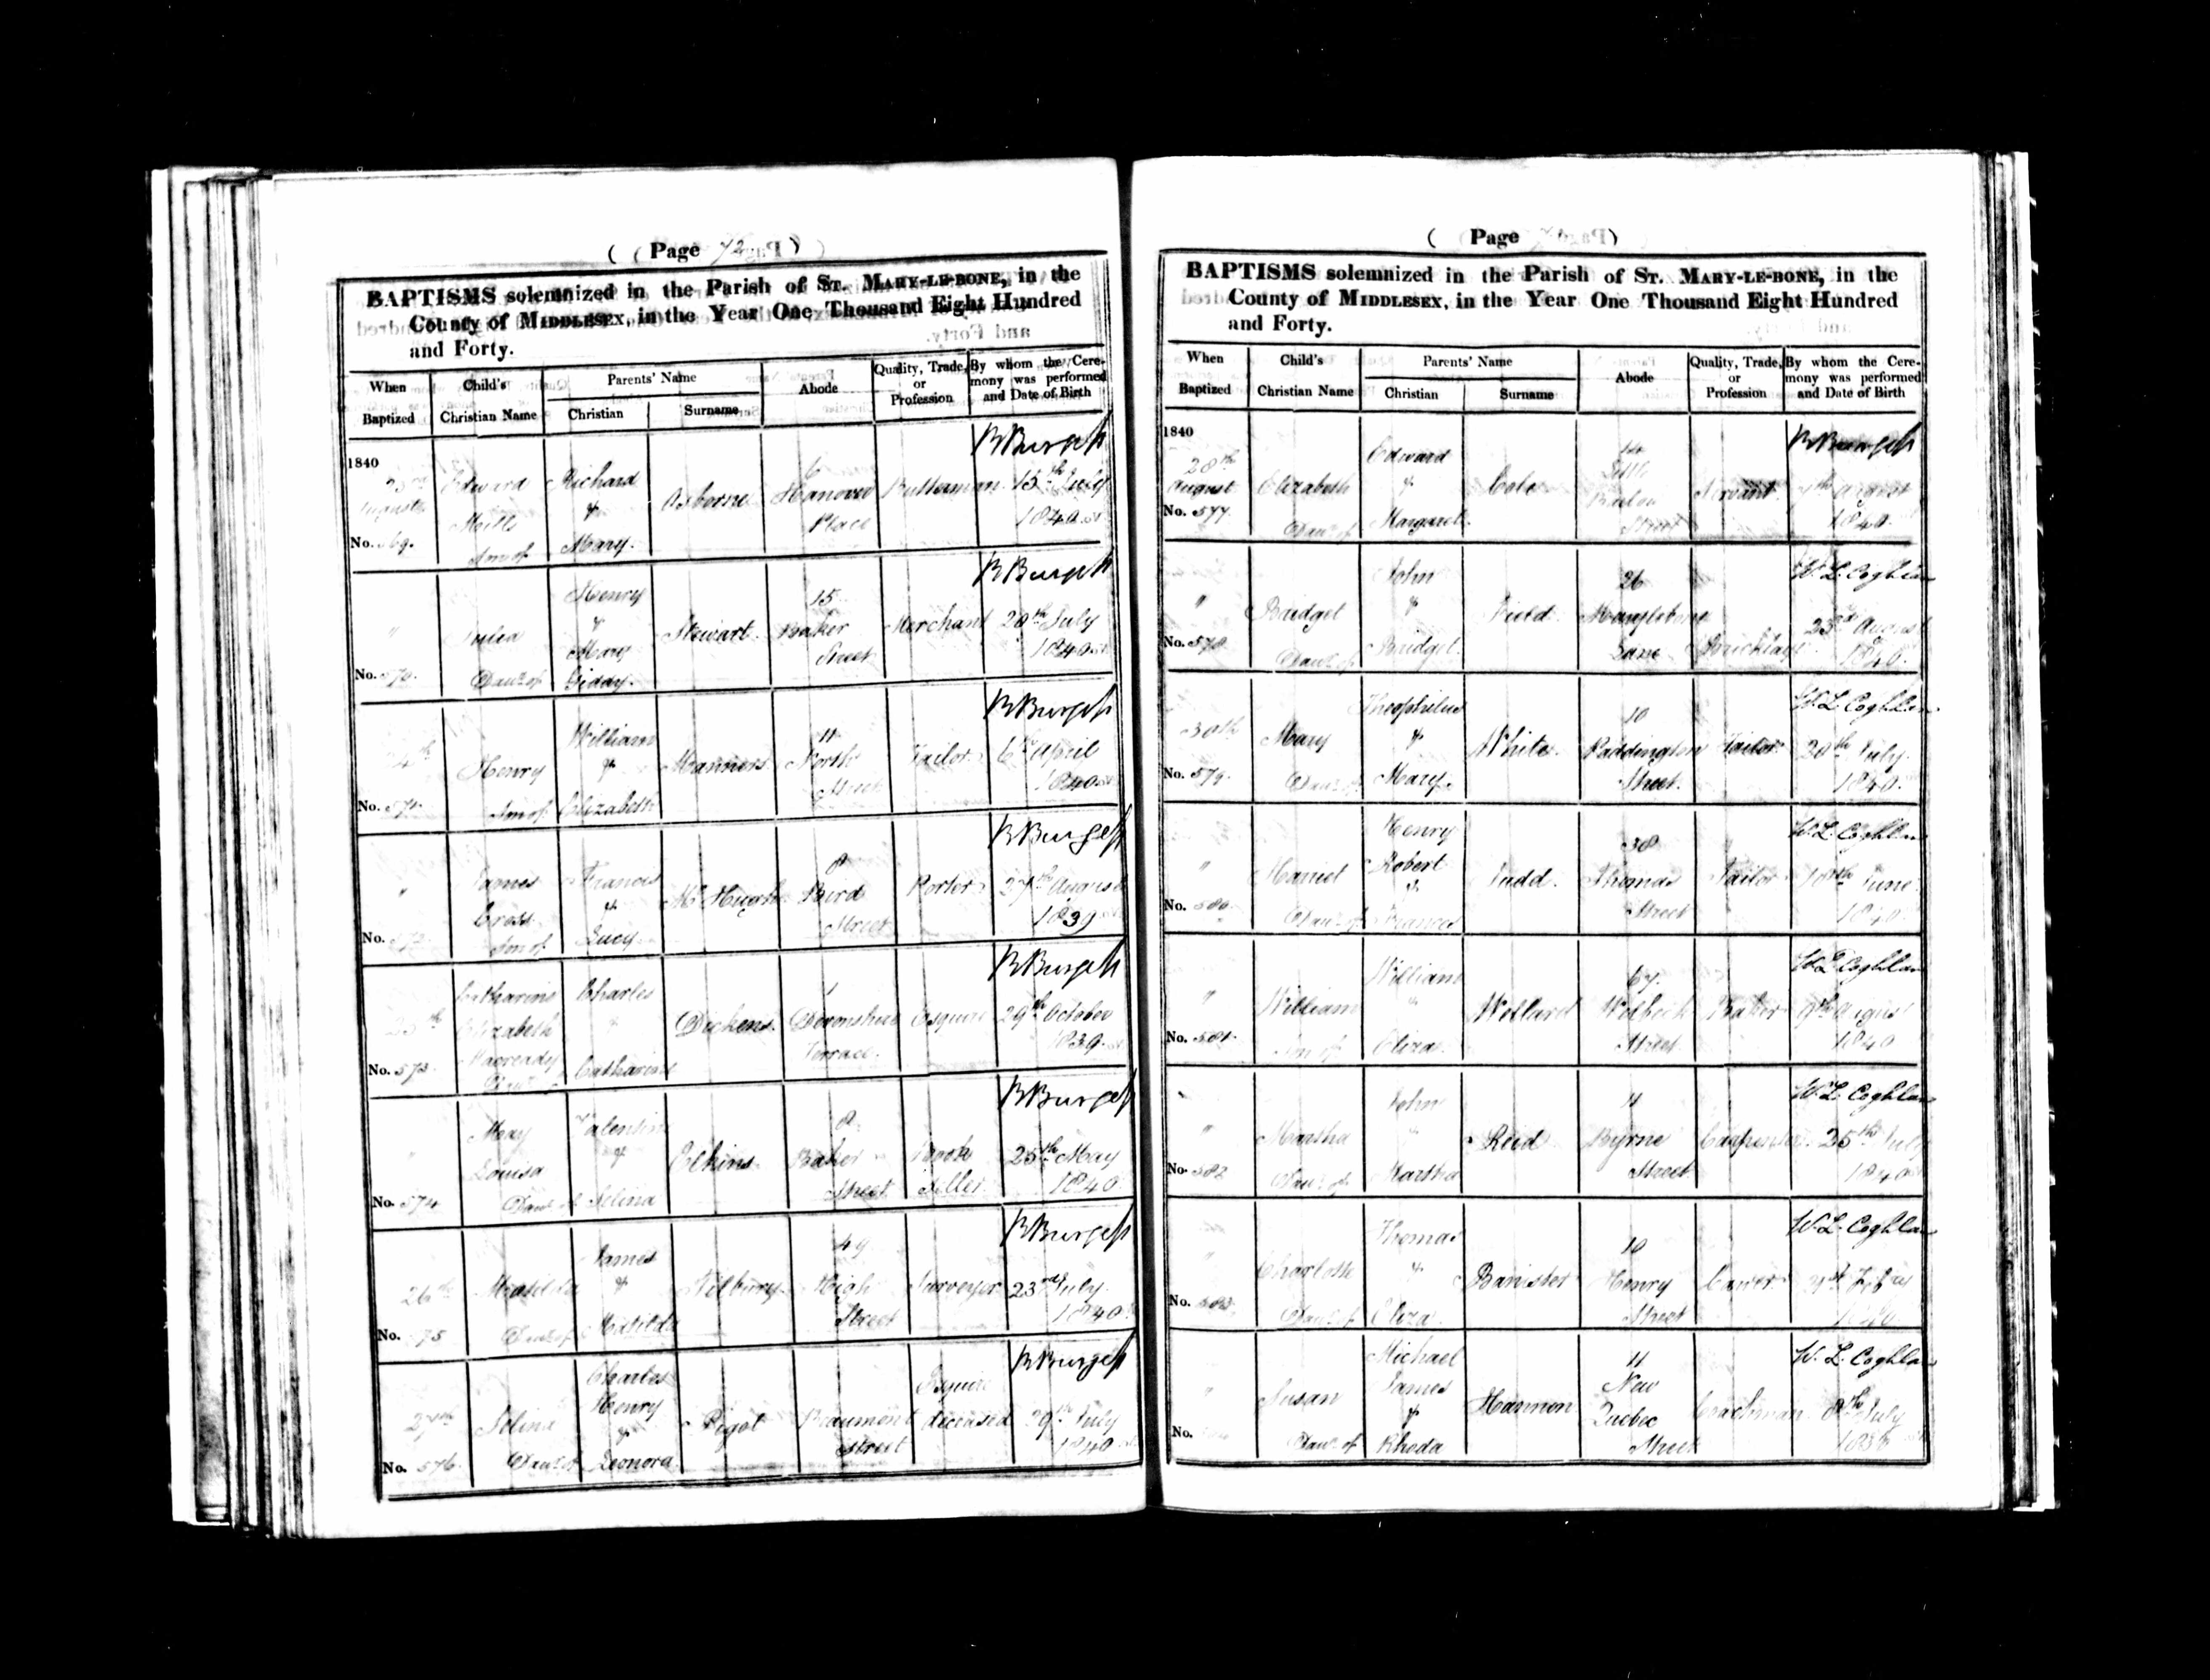 ( Page 72 )
BAPTISMS solemnized in the Parish of ST. MARY-LE-BONE, in the
County of MIDDLESEX, in the Year One Thousand Eight Hundred
and Forty.
When Baptized
Child's Christian Name
Parents' Name
Christian
Surname
Abode
Quality, Trade, or Profession
By whom the Ceremony was performed and Date of Birth
1840
Edward
Son of
Richard
&
Mary.
Osborne
6
Hanover
Place
Butterman
B Burgess
13th July
1840
No.
"
Julia
Daur of
Henry
&
Mary
Stewart.
15
Baker
Street
Merchant
B Burgess
28th July
1840
No.
Henry
Son of
William
&
Elizabeth
Manners
11
North
Street
Tailor
B Burgess
6th April
1840
No.
"
James
Cross
Son of
Francis
&
Lucy
Mc Hugh
8
Bird
Street
Porter
B Burgess
27th August
1839
No.
25th
Catharine
Elizabeth
Macready
Daur of
Charles
&
Catharine
Dickens.
1
Devonshire
Terrace.
Esquire
B Burgess
29th October
1839
No. 573
"
May
Louisa
Daur of
Valentine
&
Selina
Elkins.
8
Baker
Street
Book
Seller
B Burgess
25th May
1840
No. 574
26th
Matilda
Daur of
James
&
Matilda
Tilbury
49
High
Street
Surveyor
B Burgess
23rd July
1840
No. 575
27th
Selina
Daur of
Charles
Henry
&
Leonora.
Pigot
Beaumont
Street
Esquire
deceased
B Burgess
29th July
1840
No. 576
( Page )
BAPTISMS solemnized in the Parish of ST. MARY-LE-BONE, in the
County of MIDDLESEX, in the Year One Thousand Eight Hundred
and Forty.
When Baptized
Child's Christian Name
Parents' Name
Christian
Surname
Abode
Quality, Trade, or Profession
By whom the Ceremony was performed and Date of Birth
1840
28th
August
No. 577
Elizabeth
Daur of
Edward
&
Margaret.
Cole
14
Street
Servant
B Burgess
August
1840
"
No. 578
Bridget
Daur of
John
&
Bridget.
Field
26
Marylebone
Lane
W. L. Coghlan
23rd August
1840
30th
No. 579
Mary
Daur of
Theophilus
&
Mary.
White.
10
Paddington
Street.
Tailor
W. L. Coghlan
20th July
1840
"
No. 580
Harriet
Daur of
Henry
Robert
&
Frances
Judd.
38
Thomas
Street
Tailor
W. L. Coghlan
June
1840
"
No. 581
William
Son of
William
&
Eliza
Wellard
67.
Welbeck
Street
Baker
W. L. Coghlan
9th August
1840
"
No. 582
Martha
Daur of
John
&
Martha
Reid
11
Byrne
Street
Carpenter
W. L. Coghlan
25th July
1840
"
No. 583
Charlotte
Daur of
Thomas
&
Eliza
Banister
10
Henry
Street
Carver
W. L. Coghlan
"
No.
Susan
Daur of
Michael
James
&
Rhoda
Hannon
11
New
Quebec
Street
Coachman
W. L. Coghlan
8th July